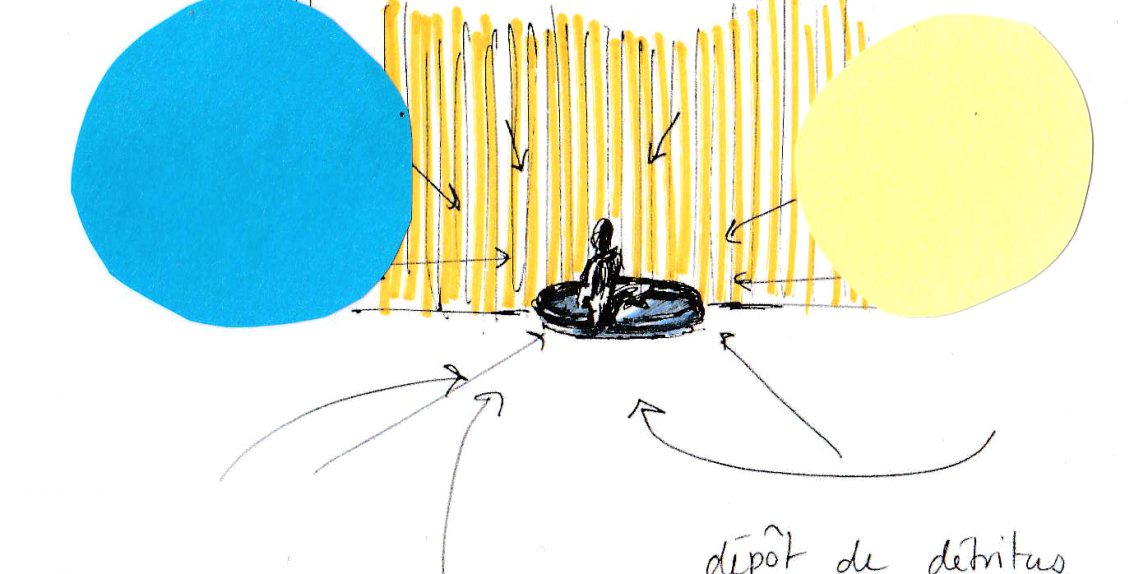 dépôt de détritus